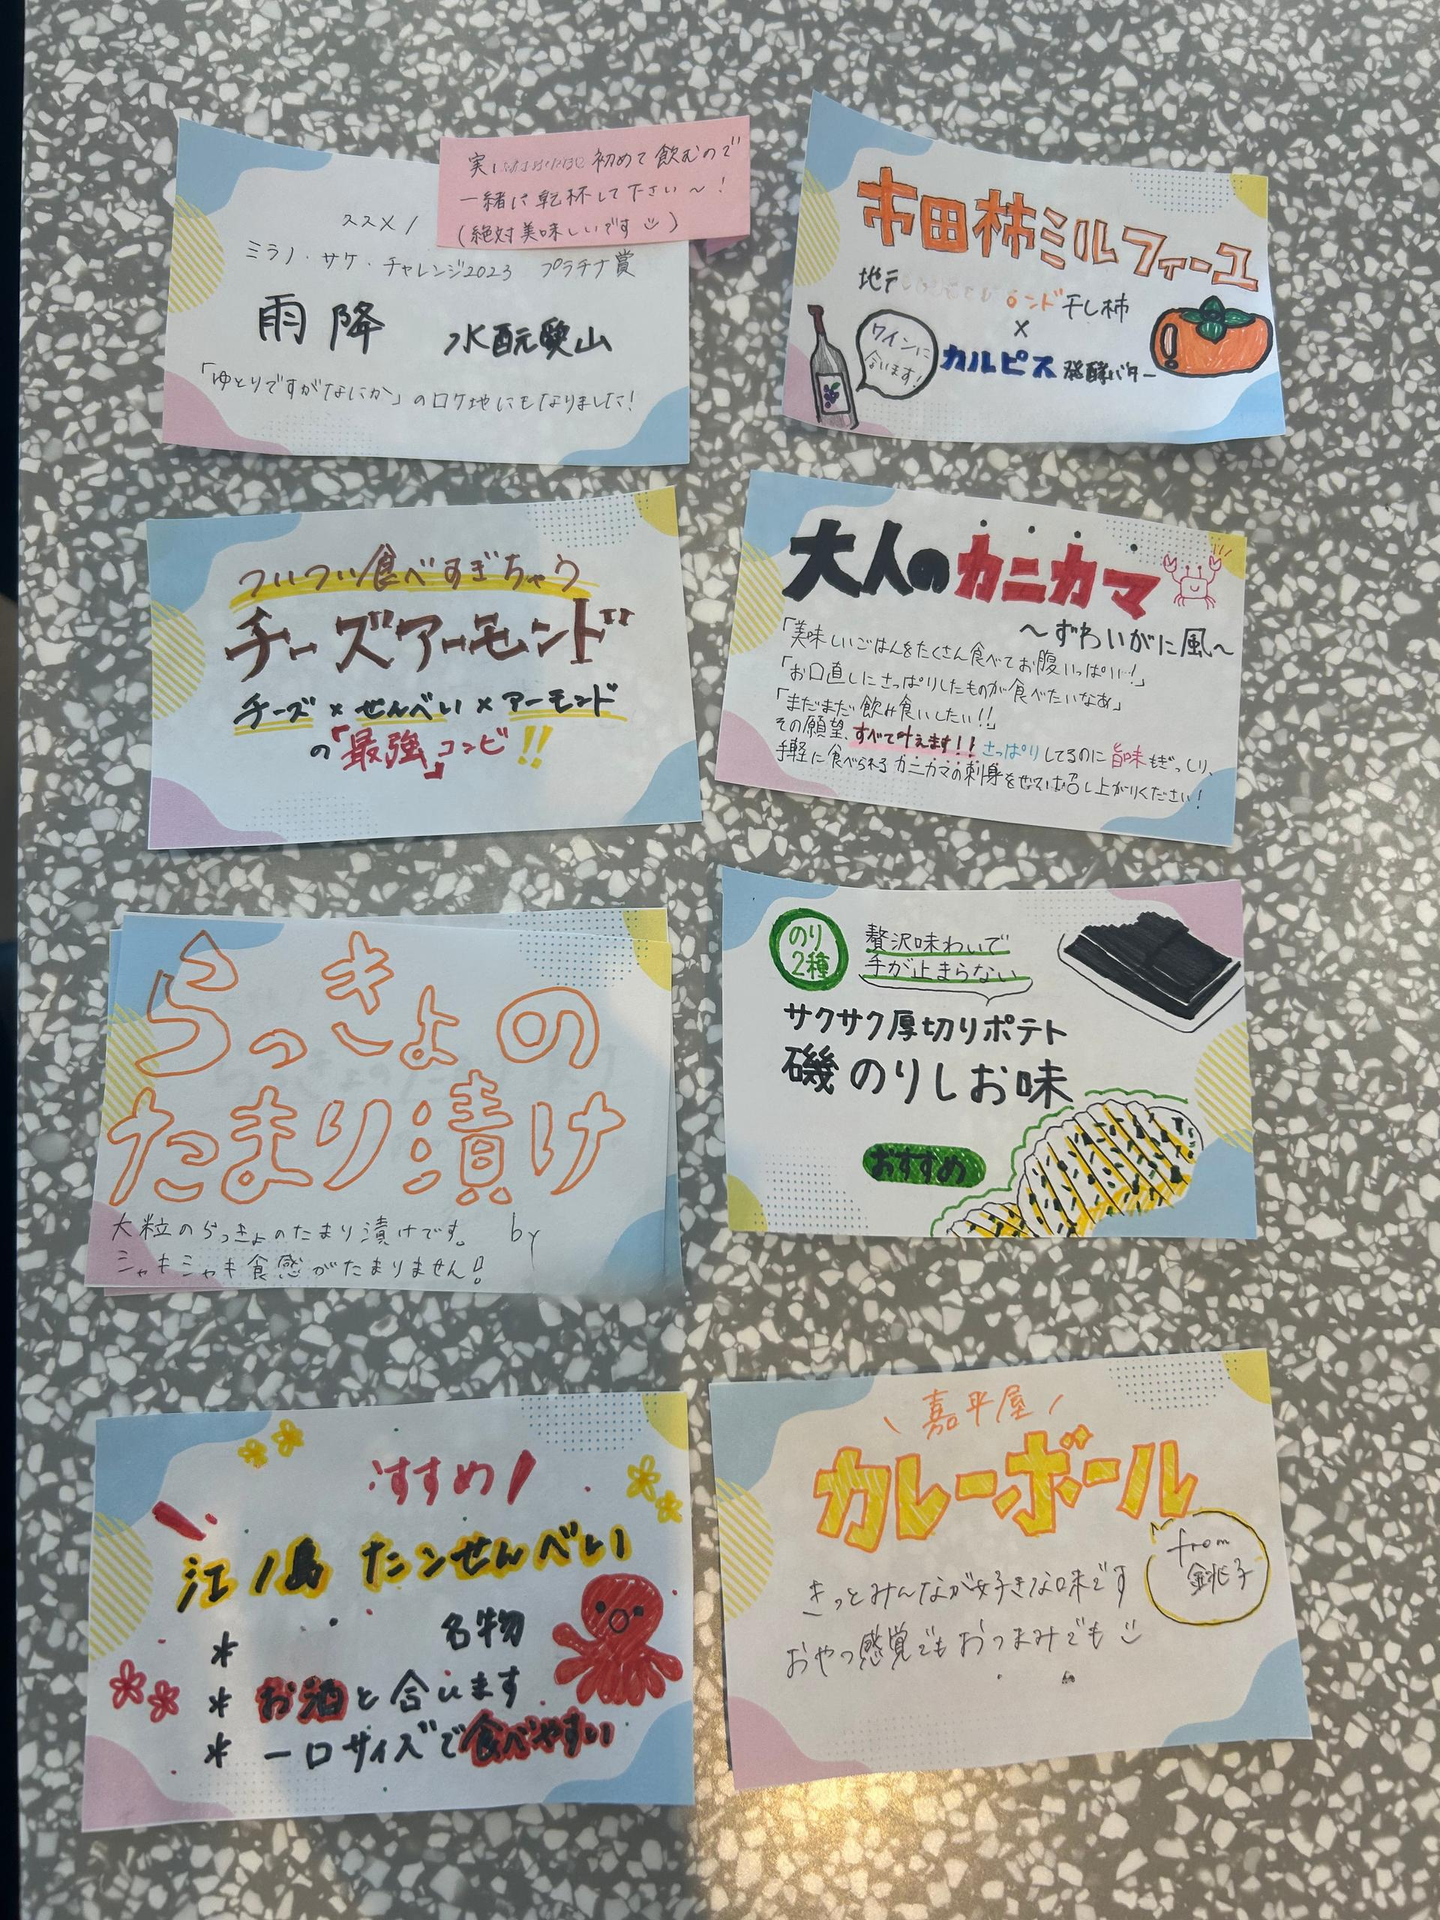 実は 初めて飲むので
一緒に乾杯して下さい〜!
(絶対美味しいです)
ススメ/
ミラノ・サケ・チャレンジ2023 プラチナ賞
雨降 水酛愛山
「ゆとりですがなにか」のロケ地にもなりました!
市田柿ミルフィーユ
地元 ランド干し柿
×
ワインに
合います!
カルピス発酵バター
ついつい食べすぎちゃう
チーズアーモンド
チーズ×せんべい×アーモンド
の「最強」コンビ!!
大人のカニカマ
〜ずわいがに風〜
「美味しいごはんをたくさん食べてお腹いっぱい!」
「お口直しにさっぱりしたものが食べたいなあ」
「まだまだ飲み食いしたい!!」
その願望、すべて叶えます!!さっぱりしてるのに旨味もぎっしり、
手軽に食べられるカニカマの刺身をぜひお召し上がりください!
らっきょの
たまり漬け
大粒のらっきょのたまり漬けです。 by
シャキシャキ食感がたまりません!
のり
2種
贅沢味わいで
手が止まらない
サクサク厚切りポテト
磯のりしお味
おすすめ
すすめ/
江ノ島 たこせんべい
* 名物
* お酒と合います
* 一口サイズで食べやすい
\ 嘉平屋 /
カレーボール
from
銚子
きっとみんなが好きな味です
おやつ感覚でもおつまみでも